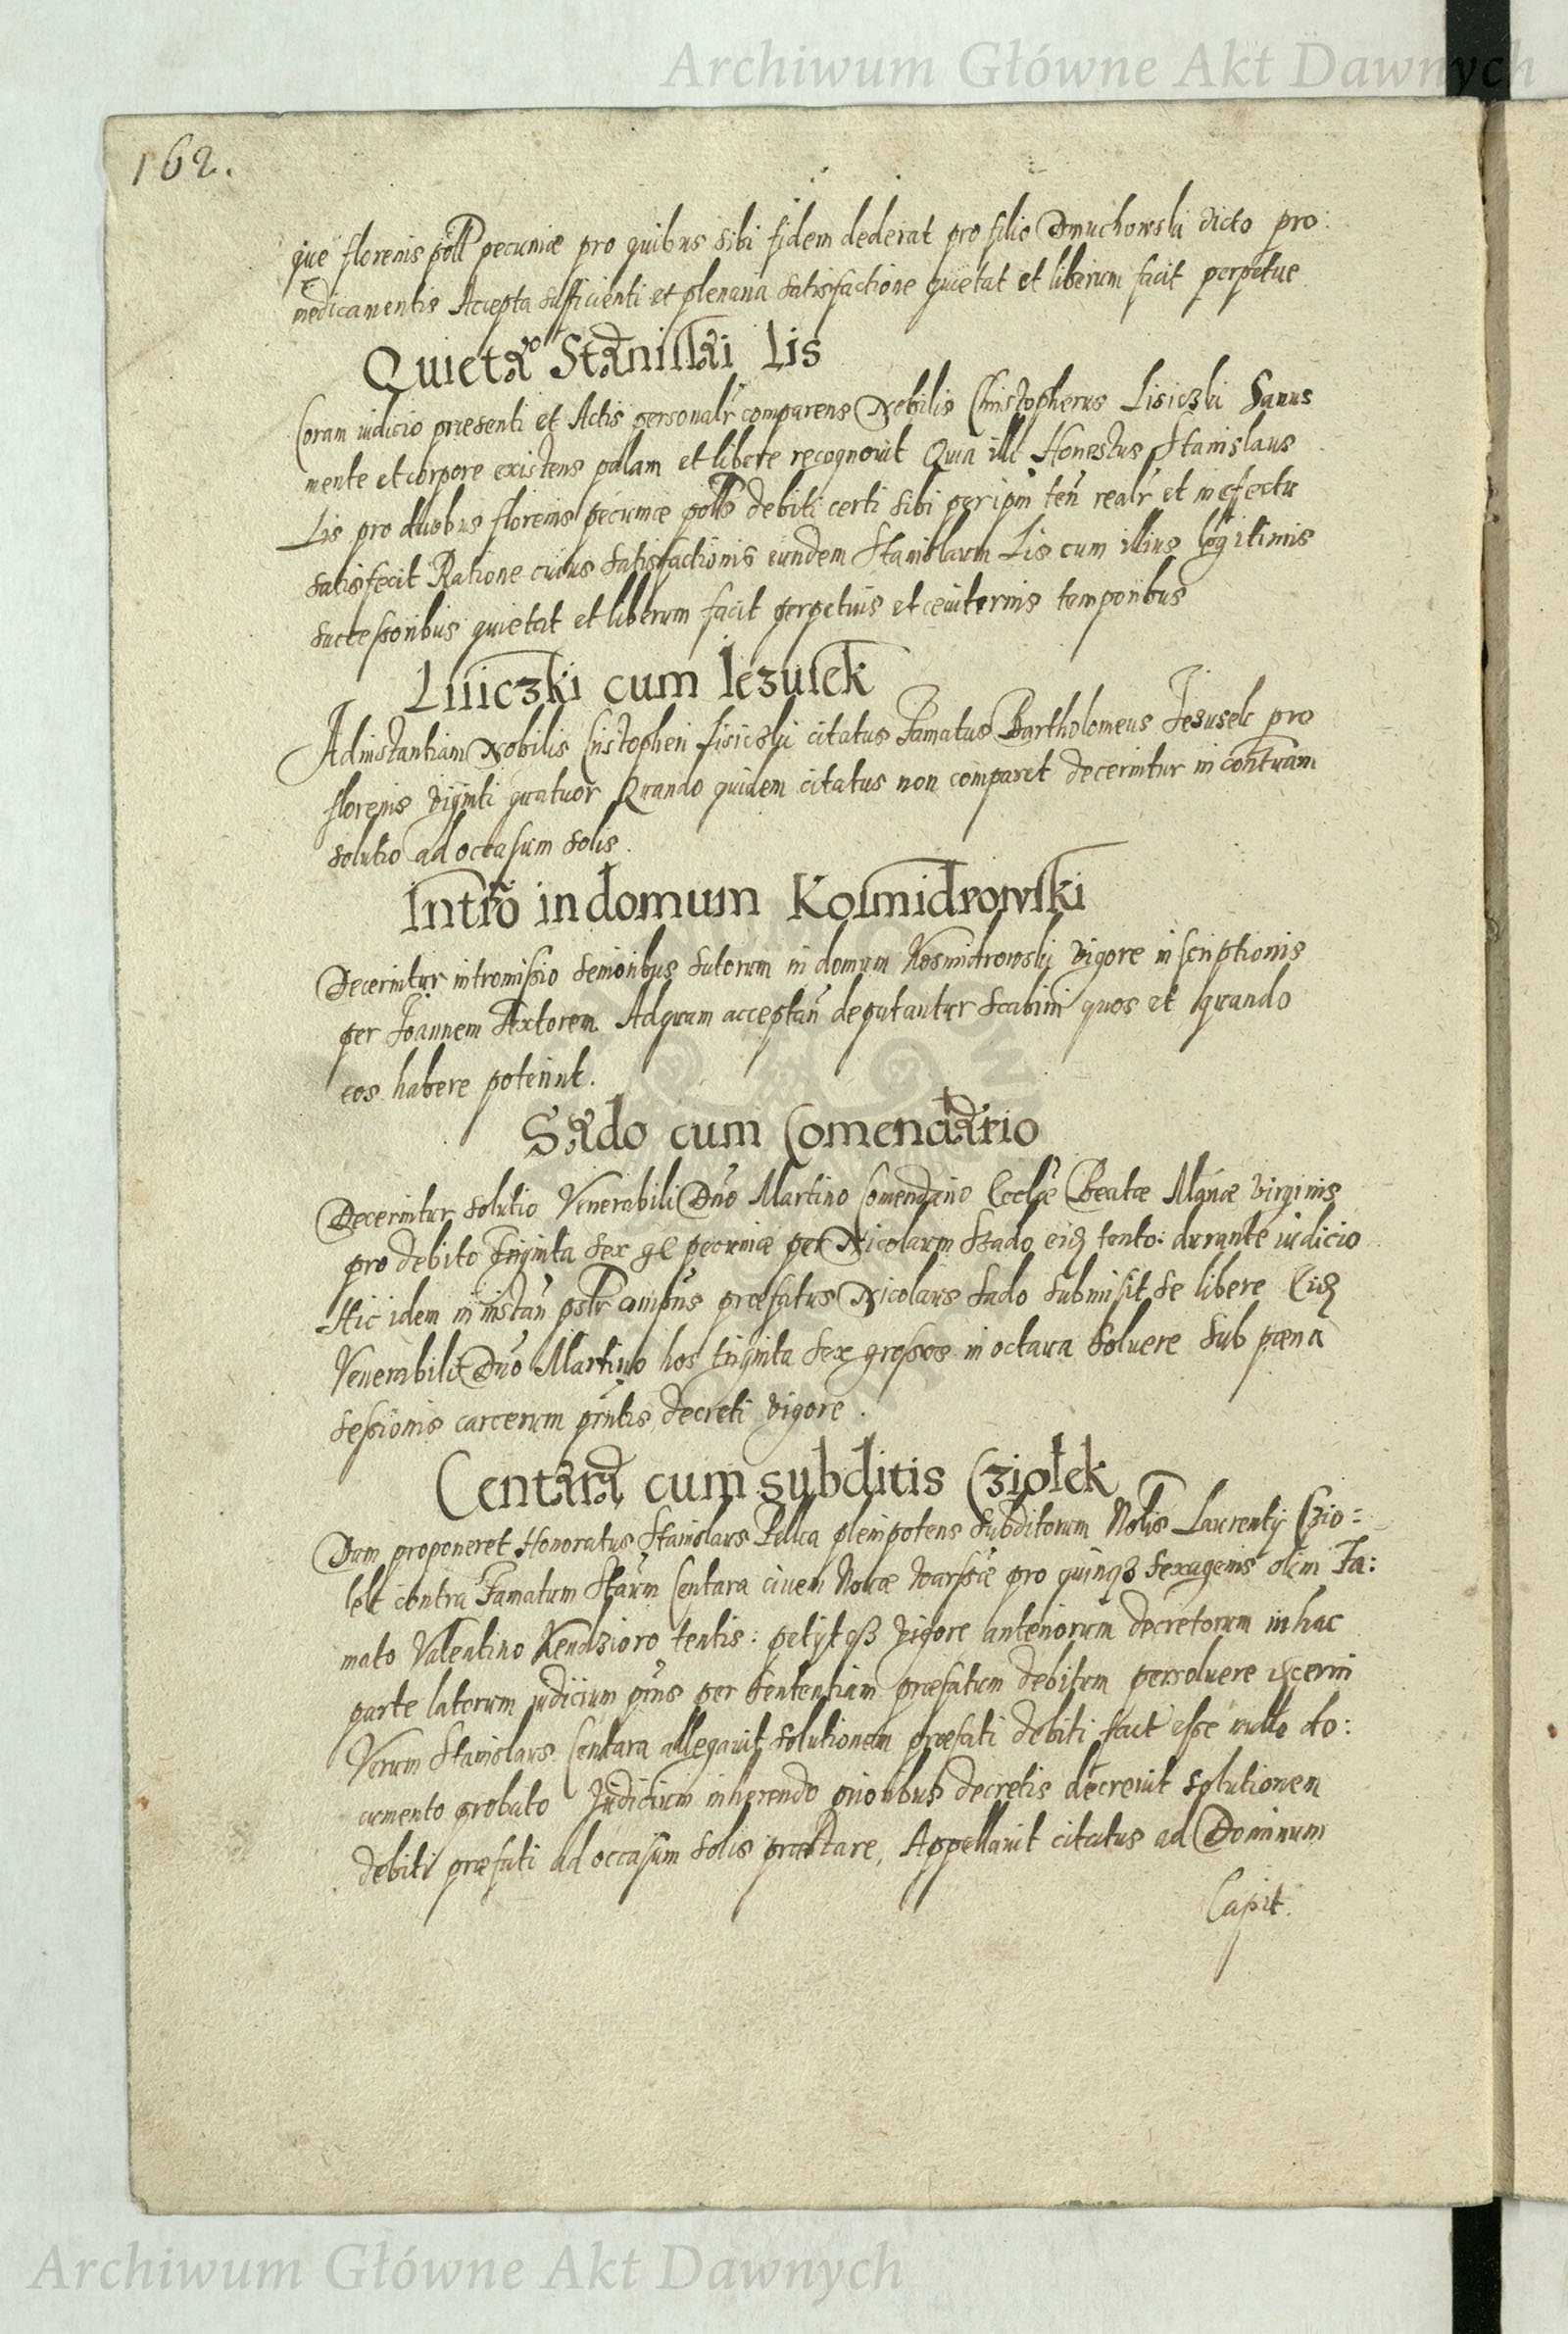 Archiwum Główne Akt Dawnych
162.
que florenis poll pecuniæ pro quibus sibi fidem dederat pro filio Dmuchowski dicto pro
medicamentis Accepta sufficienti et plenaria satisfactione quietat et liberum facit perpetue
Quietao Stanislai Lis
Coram iudicio præsenti et Actis personalr comparens Nobilis Christopherus Lisiczki Sanus
mente et corpore existens palam et libere recognovit Quia illi Honestus Stanislaus
Lis pro duobus florenis pecuniæ poll debiti certi sibi per ipm ten realr et in effectu
satisfecit Ratione cuius satisfactionis eundem Stanislaum Lis cum illius legitimis
successoribus quietat et liberum facit perpetuis et æviternis temporibus
Lisiczki cum Iezusek
Ad instantiam Nobilis Cristopheri Lisiczki citatus Famatus Bartholomeus Jesusek pro
florenis viginti quatuor Quando quidem citatus non comparet decernitur in contuam
solutio ad occasum solis.
Intro in domum Kosmidrowski
Decernitur intromissio senioribus sutorum in domum Kosmidrowski vigore inscriptionis
per Joannem Textorem Ad quam acceptan deputantur scabini quos et quando
eos habere poterint.
Sado cum Comendario
Decernitur solutio Venerabili Dno Martino Comendario Ecclæ Beatæ Mariæ Virginis
pro debito triginta sex gr pecuniæ per Nicolaum Szado eidz tento: durante iudicio
Hic idem in instan præfatus Nicolaus Sado submisit se libere Eidz
Venerabili Dno Martino hos triginta sex grossos in octava soluere sub pæna
sessionis carcerum pntis decreti vigore.
Centara cum subditis Cziolek
Dum proponeret Honoratus Stanislaus Pellca plenipotens subditorum Nobis Laurentij Czio=
lek contra Famatum Staum Centara civem Novæ Warsiæ pro quinqz sexagenis olim Fa:
mato Valentino Kendzioro tentis: petijt vigore anteriorum decretorum in hac
parte latorum judicium pns per sententiam præfatum debitum persoluere decerni
Verum Stanislaus Centara allegavit solutionem præfati debiti fact esse nullo do:
cumento probato Judicium inherendo prioribus decretis decrevit solutionem
debiti præfati ad occasum solis præstare, Appellavit citatus ad Dominum
Capit.
Archiwum Główne Akt Dawnych